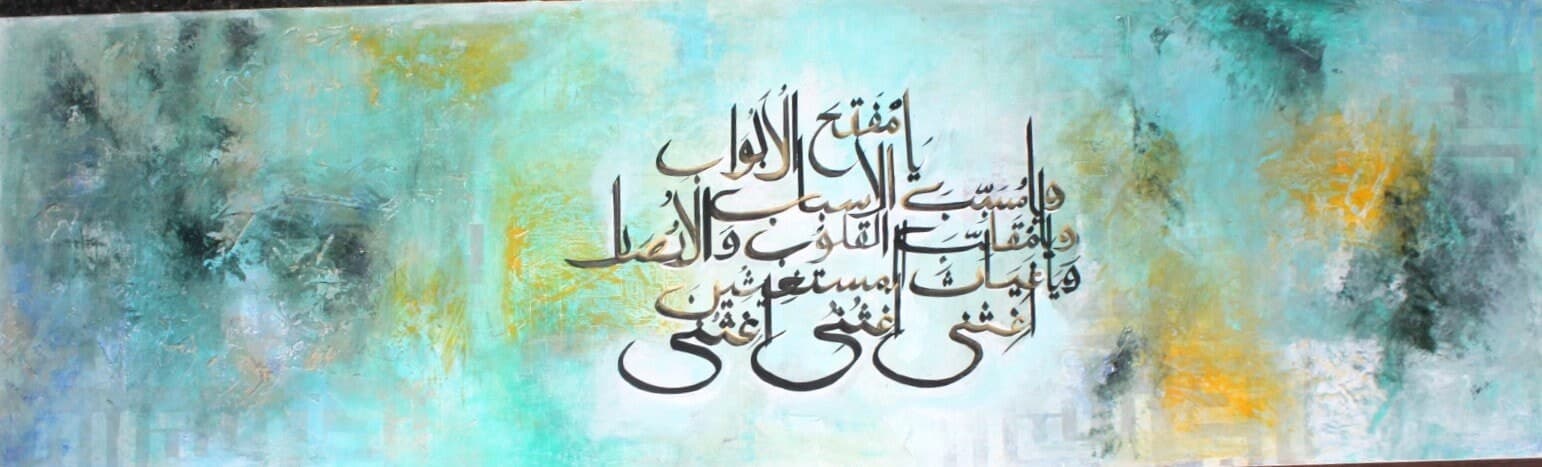 يَا مُفَتِحَ الْاَبْوَاب
وَيَا مُسَبِّبَ الْاسباب
وَيَا مُقَلِّبَ القلوب وَالْاَبْصَار
وَيَا غِيَاثَ المستغِيثِين
اَغِثنی اَغِثنی اَغِثنی